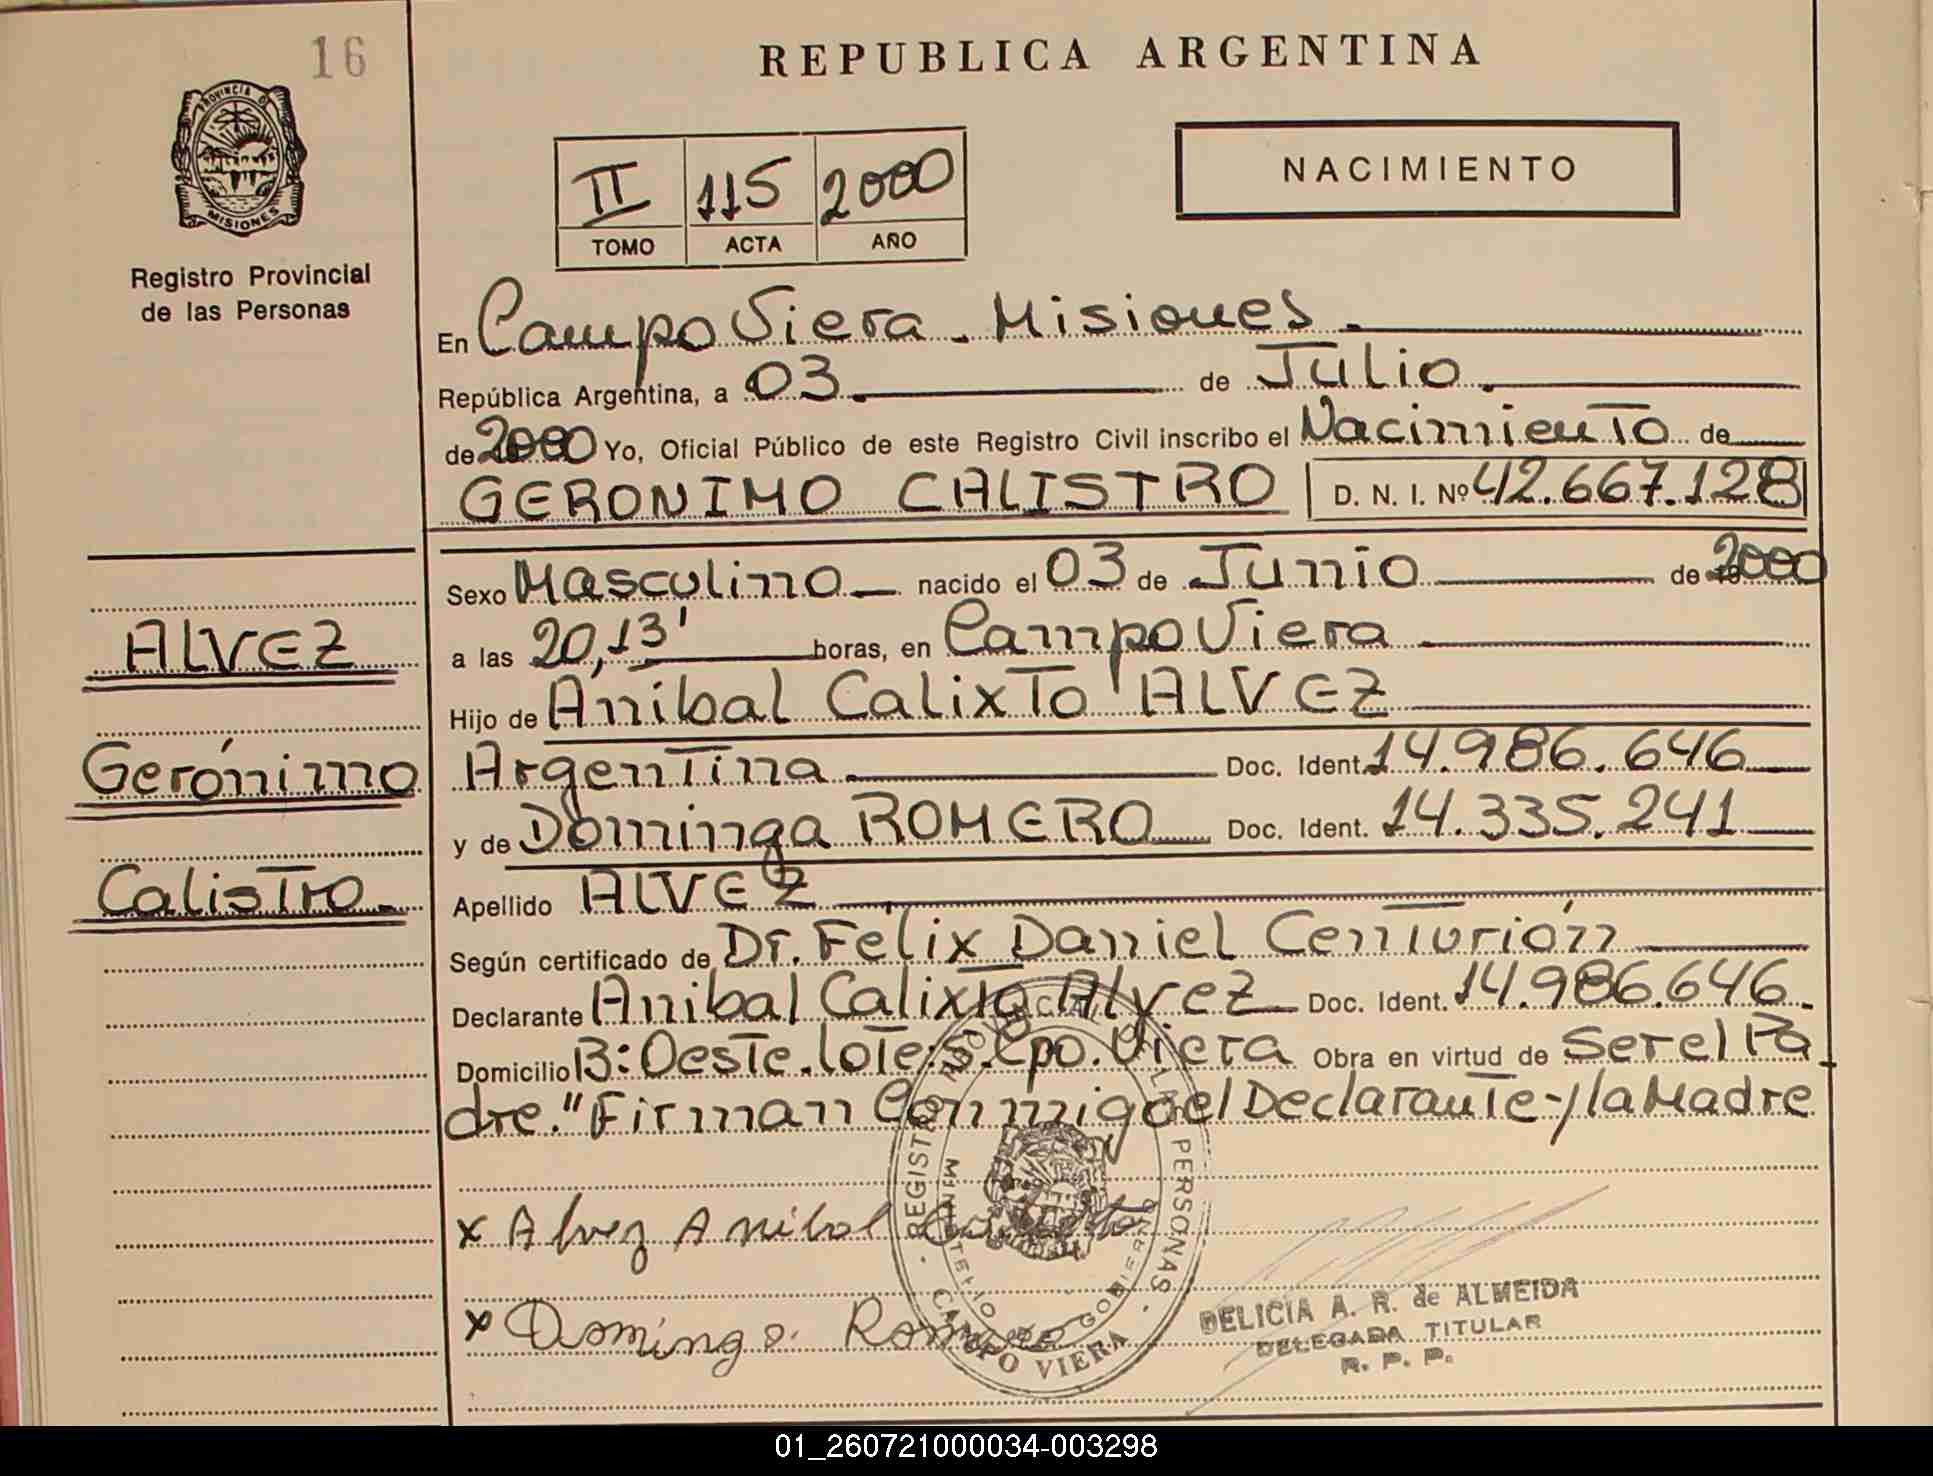 16
REPUBLICA ARGENTINA
PROVINCIA DE
MISIONES
Registro Provincial
de las Personas
II 115 2000
TOMO ACTA AÑO
NACIMIENTO
En Campo Viera - Misiones.
República Argentina, a 03 de Julio.
de 2000 Yo, Oficial Público de este Registro Civil inscribo el Nacimiento de
GERONIMO CALISTRO D. N. I. Nº 42.667.128
Sexo Masculino nacido el 03 de Junio de 2000
a las 20,13' horas, en Campo Viera
Hijo de Anibal Calixto ALVEZ
Argentina Doc. Ident. 14.986.646
y de Dominga ROMERO Doc. Ident. 14.335.241
Apellido ALVEZ
Según certificado de Dr. Félix Daniel Centurión
Declarante Anibal Calixto Alvez Doc. Ident. 14.986.646.
Domicilio B: Oeste. lote: 5. Cpo. Viera Obra en virtud de Ser el Pa
dre." Firman Conmigo el Declarante y la Madre
ALVEZ
Gerónimo
Calistro.
x Alvez Anibal Calixto
x Dominga Romero
REGISTRO PROVINCIAL DE LAS PERSONAS
CAMPO VIERA
DELICIA A. R. de ALMEIDA
DELEGADA TITULAR
R. P. P.
01_260721000034-003298